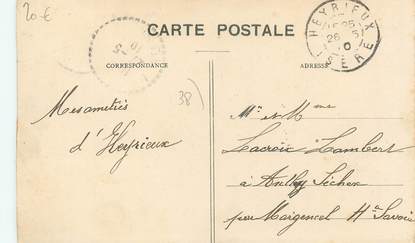 20 €
CARTE POSTALE
CORRESPONDANCE
ADRESSE
HEYRIEUX
16 25
26 5
10
ISÈRE
38
Mes amitiés
d'Heyrieux
Mr et Mme
Lacroix Lambert
à Anthy Séchex
par Margencel Hte Savoie